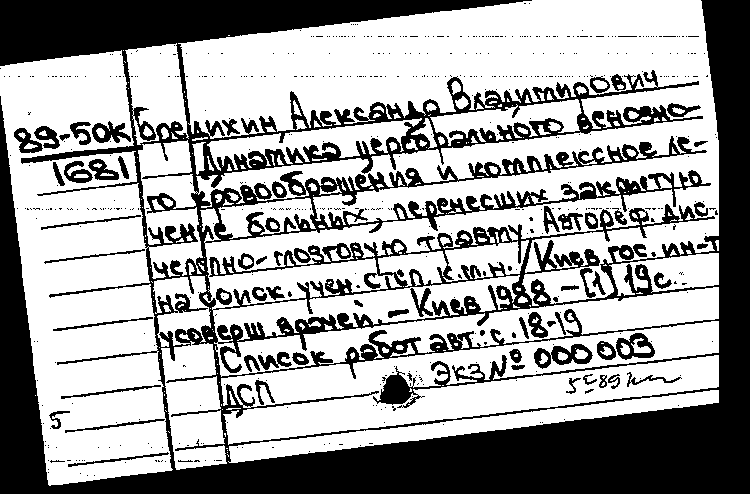 89-50К
1681
Бредихин, Александр Владимирович
Динамика церебрального венозно-
го кровообращения и комплексное ле-
чение больных, перенесших закрытую
черепно-мозговую травму: Автореф. дис.
на соиск. учен. степ. к.м.н. / Киев. гос. ин-т
усоверш. врачей. - Киев, 1988. - [1], 19 с.
Список работ авт.: с. 18-19
ДСП Экз № 000 003
5